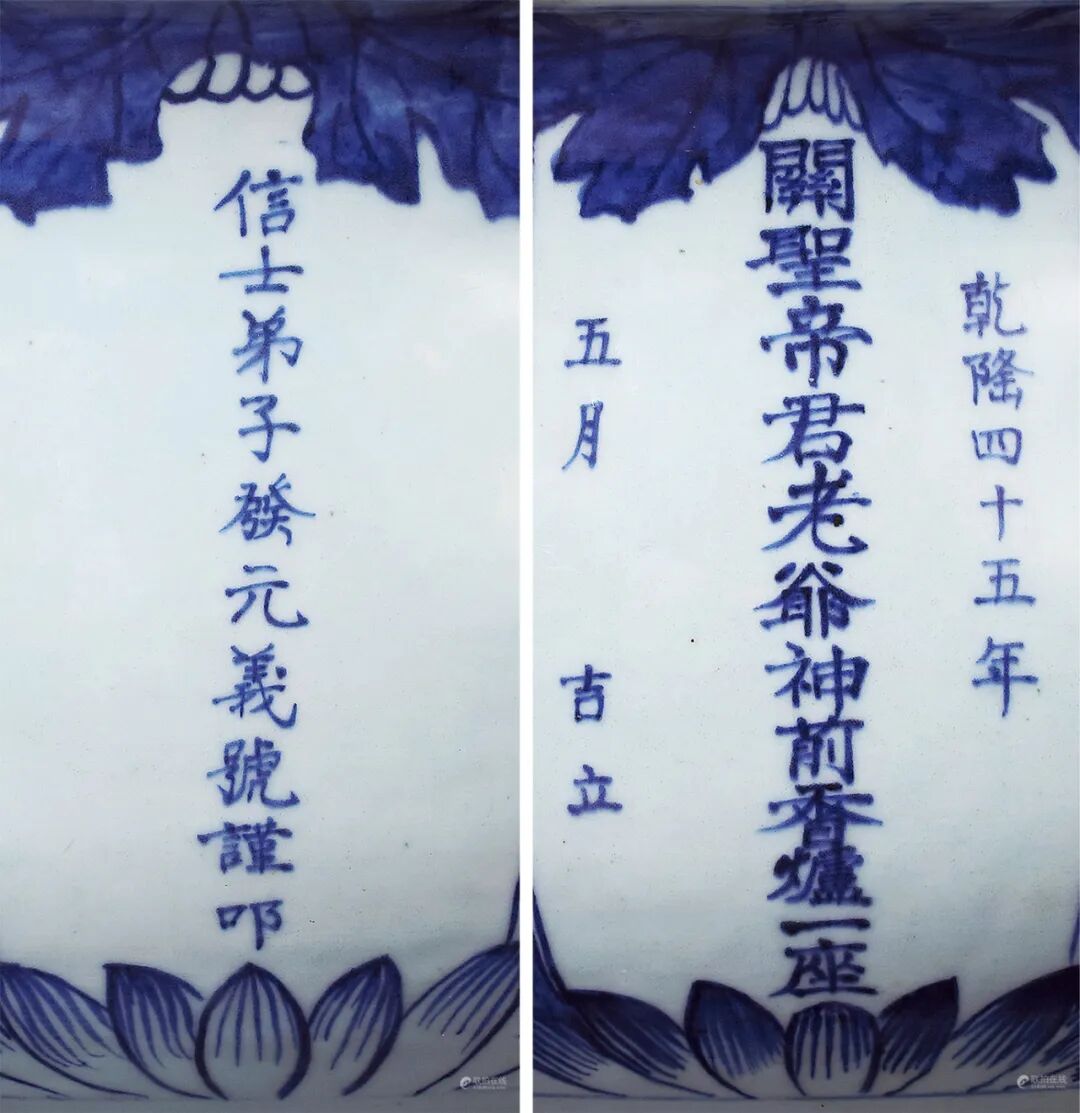 乾隆四十五年
關聖帝君老爺神前香爐一座
五月吉立
信士弟子發元義號謹叩